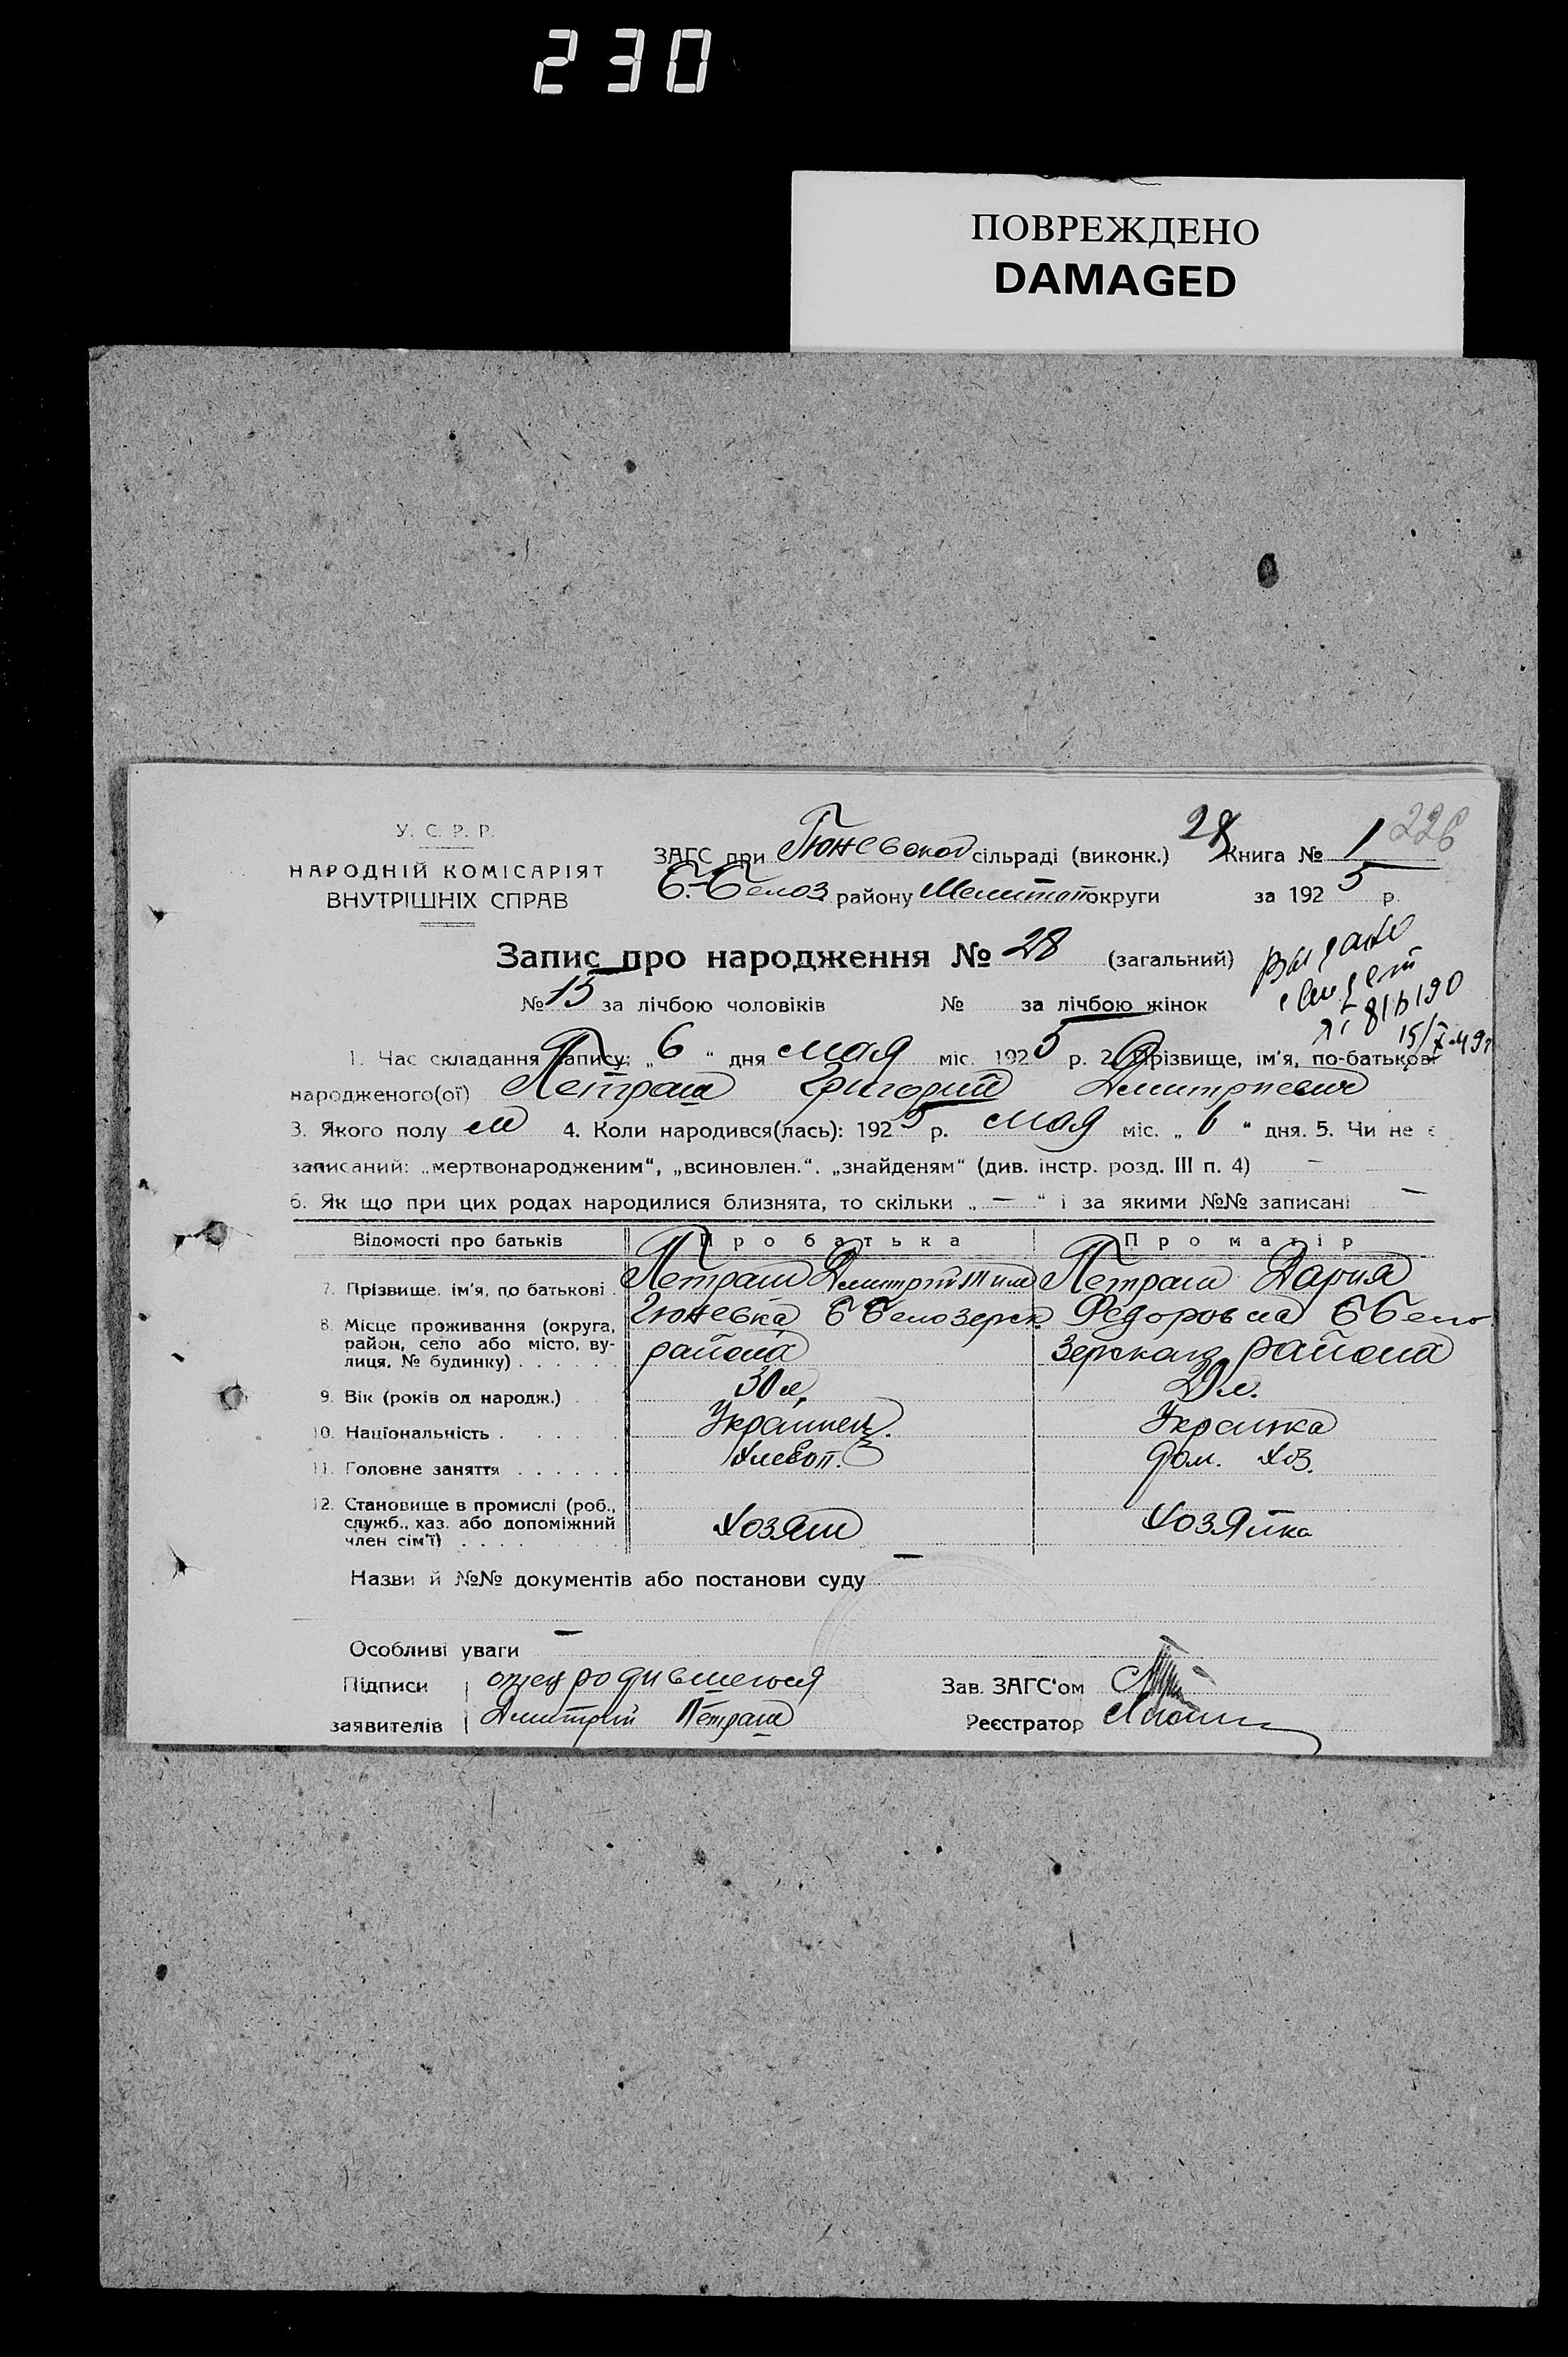 230
ПОВРЕЖДЕНО
DAMAGED
28 226
У. С. Р. Р.
НАРОДНІЙ КОМІСАРІЯТ
ВНУТРІШНІХ СПРАВ
ЗАГС при Гюневской сільраді (виконк.) Книга № 1
Б.-Белоз. району Мелитоп округи за 1925 р.
Запис про народження № 28 (загальний)
№ 15 за лічбою чоловіків № за лічбою жінок
Выдано
15/X-49г
1. Час складання запису: „ 6 “ дня мая міс. 1925 р. 2. Прізвище, ім'я, по-батькові
народженого(ої) Петраш Григорий Дмитриевич
3. Якого полу м 4. Коли народився(лась): 1925 р. мая міс. „ 6 “ дня. 5. Чи не є
записаний: „мертвонародженим“, „всиновлен.“. „знайденям“ (див. інстр. розд. III п. 4) —
6. Як що при цих родах народилися близнята, то скільки „ — “ і за якими №№ записані —
Відомості про батьків Про батька Про матір
7. Прізвище, ім'я, по батькові . Петраш Дмитрий Тим Петраш Дария
8. Місце проживання (округа, Гюневка Б Белозерск Федоровна Б Бело
район, село або місто, ву- района зерского района
лиця, № будинку) . . . . .
9. Вік (років од народж.) . 30 л. 29 л.
10. Національність . . . . . Украинец. Украинка
11. Головне заняття . . . . . . Хлебоп. Дом. Хоз.
12. Становище в промислі (роб.,
служб., хаз. або допоміжний Хозяин Хозяйка
член сім'ї) . . . .
Назви й №№ документів або постанови суду —
Особливі уваги —
Підписи отец родившегося Зав. ЗАГС'ом
заявителів Дмитрий Петраш Реєстратор